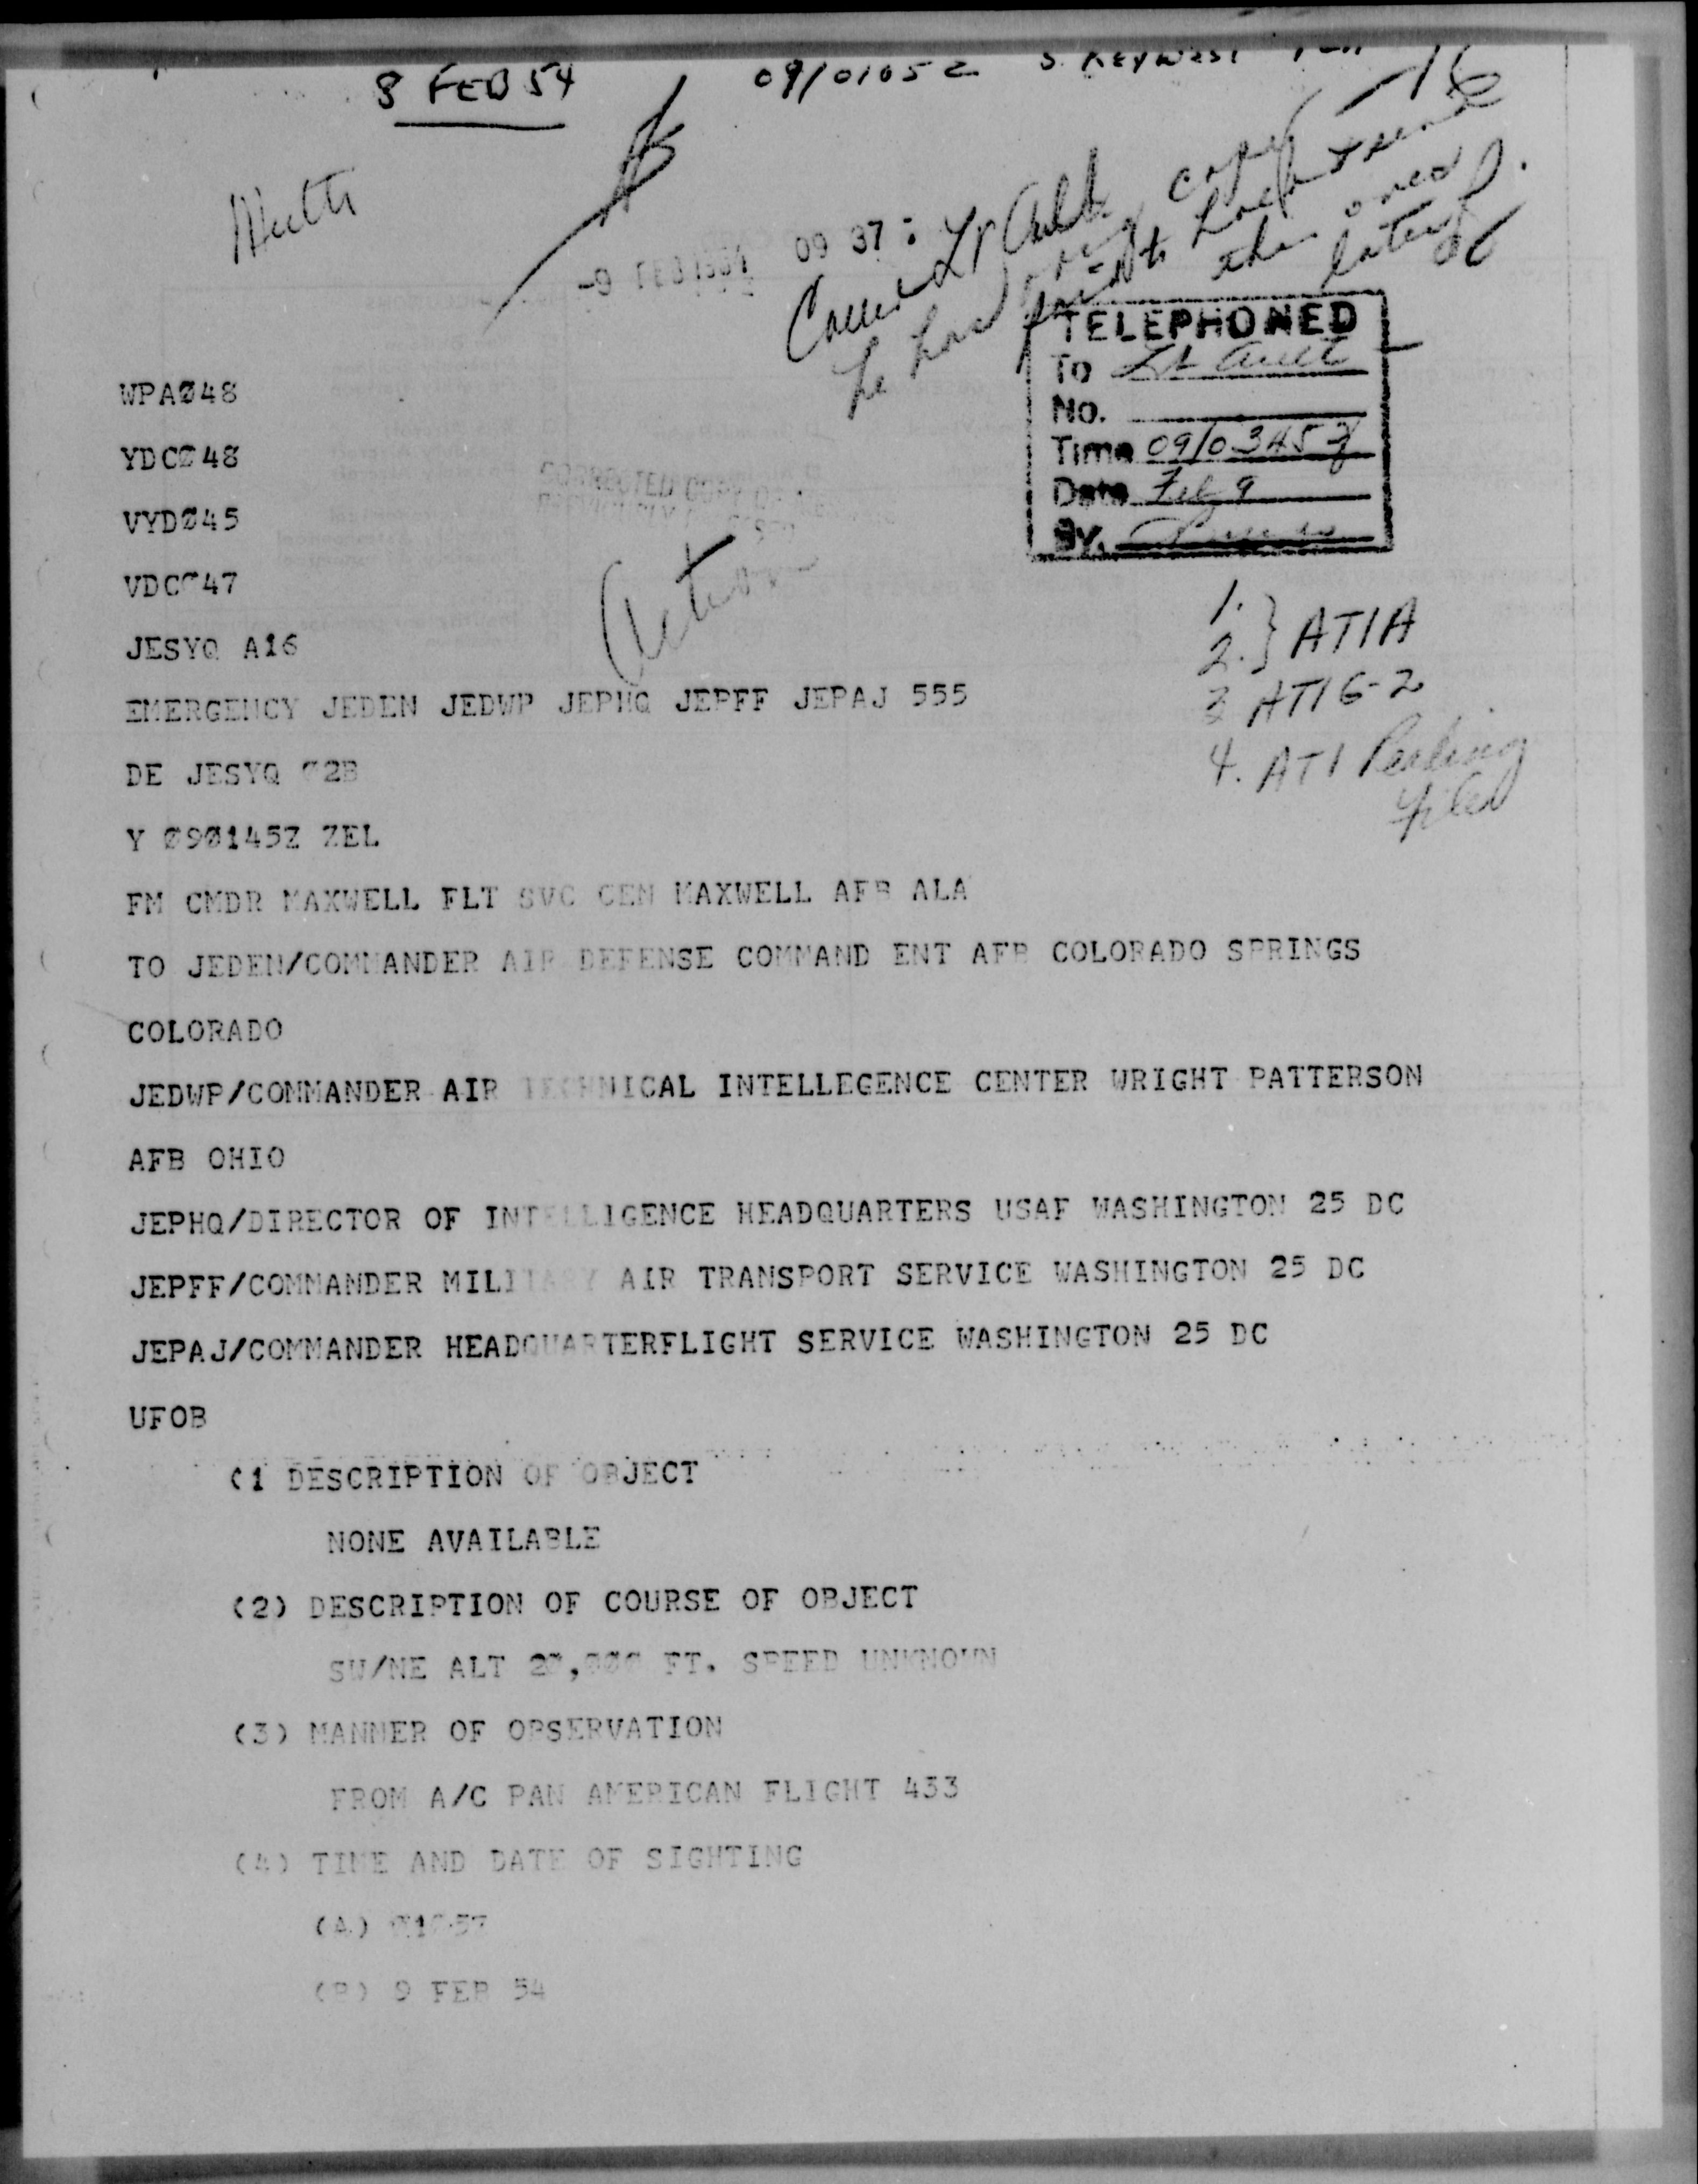 8 FEB 54
09/0105Z
-9 FEB 1954 09 37
TELEPHONED
To Lt Ault
No.
Time 09/0345Z
Date Feb 9
By.
WPAØ48
YDCØ48
VYDØ45
VDC 47
JESYQ A16
Action
1.
2. } ATIA
3 ATIG-2
4. ATI Reading
file
EMERGENCY JEDEN JEDWP JEPHQ JEPFF JEPAJ 555
DE JESYQ 02B
Y Ø9Ø145Z ZEL
FM CMDR MAXWELL FLT SVC CEN MAXWELL AFB ALA
TO JEDEN/COMMANDER AIR DEFENSE COMMAND ENT AFB COLORADO SPRINGS
COLORADO
JEDWP/COMMANDER AIR TECHNICAL INTELLEGENCE CENTER WRIGHT PATTERSON
AFB OHIO
JEPHQ/DIRECTOR OF INTELLIGENCE HEADQUARTERS USAF WASHINGTON 25 DC
JEPFF/COMMANDER MILITARY AIR TRANSPORT SERVICE WASHINGTON 25 DC
JEPAJ/COMMANDER HEADQUARTERFLIGHT SERVICE WASHINGTON 25 DC
UFOB
(1 DESCRIPTION OF OBJECT
NONE AVAILABLE
(2) DESCRIPTION OF COURSE OF OBJECT
SW/NE ALT FT. SPEED UNKNOWN
(3) MANNER OF OBSERVATION
FROM A/C PAN AMERICAN FLIGHT 433
(4) TIME AND DATE OF SIGHTING
(A)
(B) 9 FEB 54